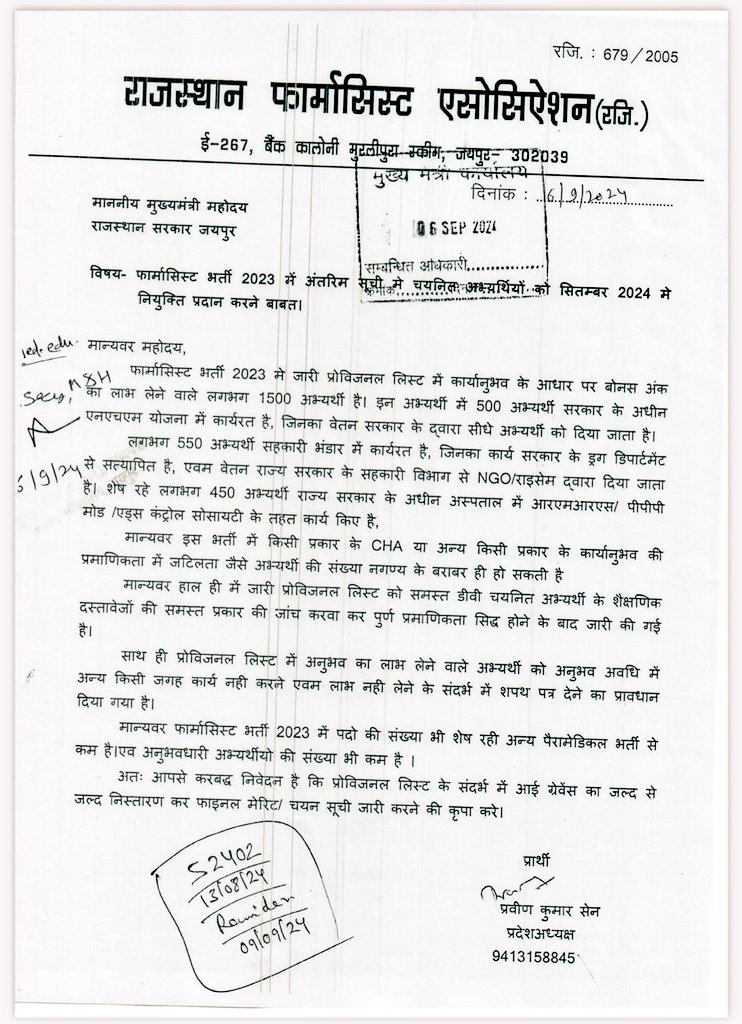 रजि. : 679/2005
राजस्थान फार्मासिस्ट एसोसिऐशन(रजि.)
ई-267, बैंक कालोनी मुरलीपुरा स्कीम, जयपुर- 302039
मुख्य मंत्री कार्यालय
दिनांक : 6/9/2024
06 SEP 2024
माननीय मुख्यमंत्री महोदय
राजस्थान सरकार जयपुर
सम्बन्धित अधिकारी
क्रमांक
विषय- फार्मासिस्ट भर्ती 2023 में अंतरिम सूची मे चयनित अभ्यर्थियों को सितम्बर 2024 मे
नियुक्ति प्रदान करने बाबत।
मान्यवर महोदय,
फार्मासिस्ट भर्ती 2023 मे जारी प्रोविजनल लिस्ट में कार्यानुभव के आधार पर बोनस अंक
का लाभ लेने वाले लगभग 1500 अभ्यर्थी है। इन अभ्यर्थी में 500 अभ्यर्थी सरकार के अधीन
एनएचएम योजना में कार्यरत है, जिनका वेतन सरकार के द्वारा सीधे अभ्यर्थी को दिया जाता है।
लगभग 550 अभ्यर्थी सहकारी भंडार में कार्यरत है, जिनका कार्य सरकार के ड्रग डिपार्टमेंट
से सत्यापित है, एवम वेतन राज्य सरकार के सहकारी विभाग से NGO/राइसेम द्वारा दिया जाता
है। शेष रहे लगभग 450 अभ्यर्थी राज्य सरकार के अधीन अस्पताल में आरएमआरएस/ पीपीपी
मोड /एड्स कंट्रोल सोसायटी के तहत कार्य किए है,
मान्यवर इस भर्ती में किसी प्रकार के CHA या अन्य किसी प्रकार के कार्यानुभव की
प्रमाणिकता में जटिलता जैसे अभ्यर्थी की संख्या नगण्य के बराबर ही हो सकती है
मान्यवर हाल ही में जारी प्रोविजनल लिस्ट को समस्त डीवी चयनित अभ्यर्थी के शैक्षणिक
दस्तावेजों की समस्त प्रकार की जांच करवा कर पुर्ण प्रमाणिकता सिद्ध होने के बाद जारी की गई
है।
साथ ही प्रोविजनल लिस्ट में अनुभव का लाभ लेने वाले अभ्यर्थी को अनुभव अवधि में
अन्य किसी जगह कार्य नही करने एवम लाभ नही लेने के संदर्भ में शपथ पत्र देने का प्रावधान
दिया गया है।
मान्यवर फार्मासिस्ट भर्ती 2023 में पदो की संख्या भी शेष रही अन्य पैरामेडिकल भर्ती से
कम है।एव अनुभवधारी अभ्यर्थीयो की संख्या भी कम है ।
अतः आपसे करबद्ध निवेदन है कि प्रोविजनल लिस्ट के संदर्भ में आई ग्रेवेंस का जल्द से
जल्द निस्तारण कर फाइनल मेरिट/ चयन सूची जारी करने की कृपा करे।
52402
13/08/24
09/09/24
प्रार्थी
प्रवीण कुमार सेन
प्रदेशअध्यक्ष
9413158845